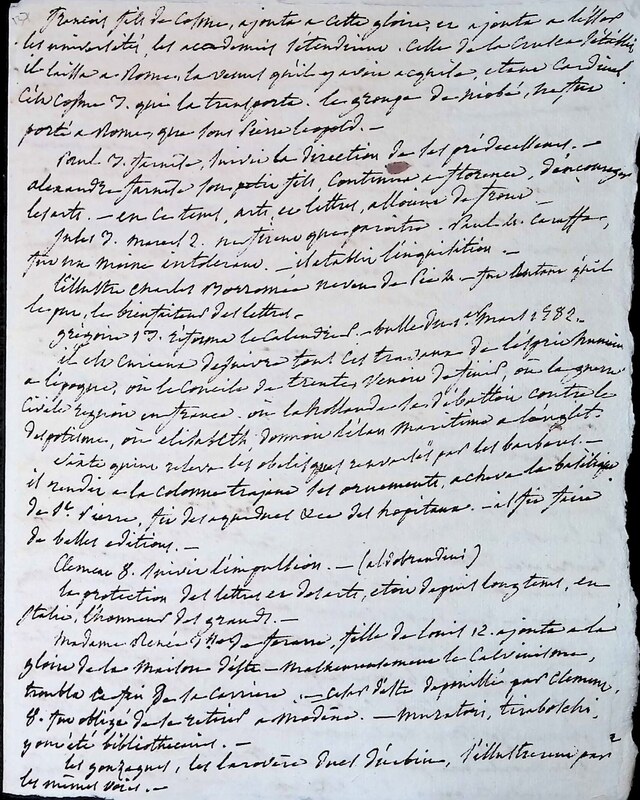 françois fils de Cosme, ajouta a cette gloire, et ajouta a l'éclat
les universités, les academies s'étendirent. Celle de la Crusca s'établit
il laissa a Rome, la venus qu'il y avoir acquise, étant Cardinal
C'est Cosme 3. qui la transporta. le groupe de Niobé, ne fut
porté a Rome, que sous pierre leopold. —
Paul 3. farnese, suivit la direction de ses prédecesseurs. —
alexandre farnese son petit fils, Continua a florence, d'encourager
les arts. — en ce tems, arts, et lettres, alloient de front —
Jules 3. marcel 2. ne firent que paroitre. Paul 4. Caraffa,
fut un moine intolerant. — il etablit l'inquisition. —
l'illustre Charles Borromée neveu de Pie 4. — fut autant qu'il
le put, le bienfaiteur des lettres. —
grégoire 13. reforma le Calendrier. — bulle du 1er Mars 1582. —
il est Curieux de suivre tous ces travaux de l'esprit humain
a l'époque, où le Concile de trente, venoit de finir, où la guerre
Civile regnoit en france. où la hollande se débattoit contre le
despotisme, où elisabeth donnoit l'élan maritime a l'anglet.
Sixte quint releva les obelisques renversés par les barbares. —
il rendit a la colonne trajane ses ornements, acheva la basilique
de St. Pierre, fit des aqueducs &ca des hopitaux. — il fit faire
de belles editions. —
Clement 8. suivit l'impulsion. — (aldobrandini)
la protection des lettres et des arts, etoit depuis longtems, en
Italie, l'honneur des grands. —
Madame Renée de ferrare, fille de louis 12. ajouta a la
gloire de la maison d'este — malheureusement le Calvinisme,
troubla la fin de sa Carriere. — Cesar d'este depouillé par Clement
8. fut obligé de se retirer a modène. — muratori, tiraboschi,
y ont été bibliothecaires. —
les gonzagues, les larovère ducs d'urbin, s'illustrerent par
les mêmes voies. —